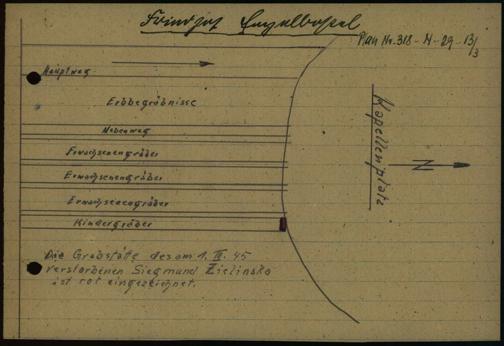 Friedhof Engelbostel
Plan Nr. 318 - H - 29 - 13/3
Hauptweg
Erbbegräbnisse
Nebenweg
Erwachsenengräber
Erwachsenengräber
Erwachsenengräber
Kindergräber
Kapellenplatz
N
Die Grabstätte des am 1. III. 45
verstorbenen Siegmund Zielinska
ist rot eingezeichnet.